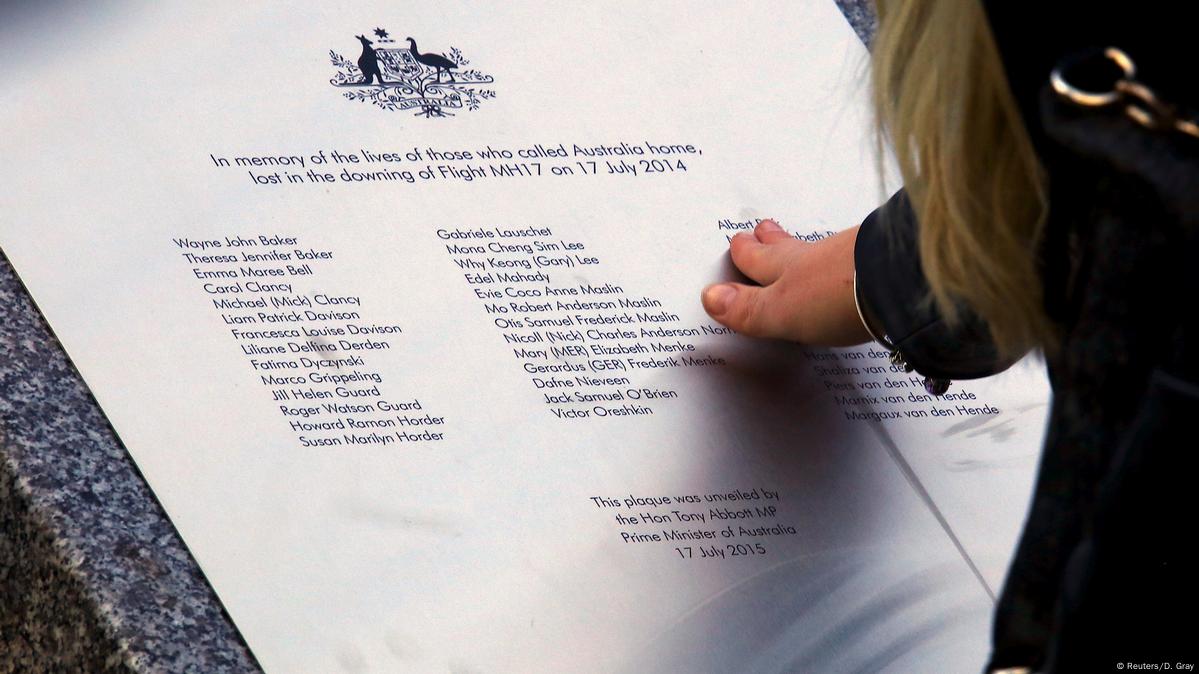 AUSTRALIA
In memory of the lives of those who called Australia home,
lost in the downing of Flight MH17 on 17 July 2014
Wayne John Baker
Theresa Jennifer Baker
Emma Maree Bell
Carol Clancy
Michael (Mick) Clancy
Liam Patrick Davison
Francesca Louise Davison
Liliane Delfina Derden
Fatima Dyczynski
Marco Grippeling
Jill Helen Guard
Roger Watson Guard
Howard Ramon Horder
Susan Marilyn Horder
Gabriele Lauschet
Mona Cheng Sim Lee
Why Keong (Gary) Lee
Edel Mahady
Evie Coco Anne Maslin
Mo Robert Anderson Maslin
Otis Samuel Frederick Maslin
Nicoll (Nick) Charles Anderson
Mary (MER) Elizabeth Menke
Gerardus (GER) Frederik Menke
Dafne Nieveen
Jack Samuel O'Brien
Victor Oreshkin
Albert
Hans van den
Shaliza van
Piers van den
Marnix van den Hende
Margaux van den Hende
This plaque was unveiled by
the Hon Tony Abbott MP
Prime Minister of Australia
17 July 2015
© Reuters/D. Gray